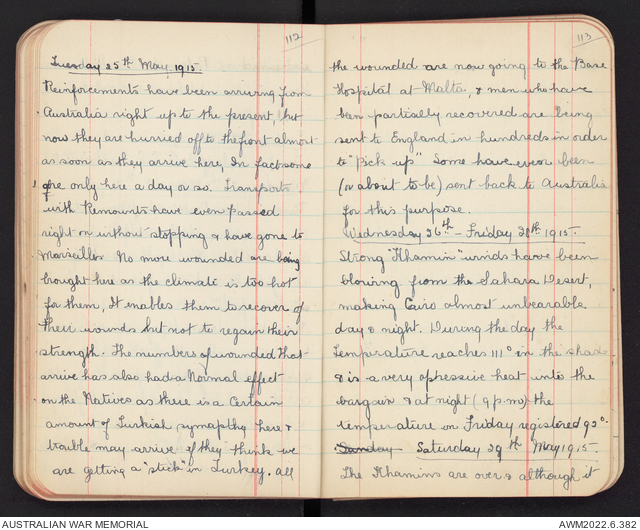 112
Tuesday 25th May. 1915.
Reinforcements have been arriving from
Australia right up to the present, but
now they are hurried off to the front almost
as soon as they arrive here, In fact some
are only here a day or so. Transports
with Remounts have even passed
right on without stopping & have gone to
Marseilles. No more wounded are being
brought here as the climate is too hot
for them, It enables them to recover of
their wounds but not to regain their
strength. The numbers of wounded that
arrive has also had a Normal effect
on the Natives as there is a Certain
amount of Turkish symapthy here &
trouble may arrive if they think we
are getting a "stick" in Turkey. all
113
the wounded are now going to the Base
Hospital at Malta, & men who have
been partially recovered are being
sent to England in hundreds in order
to "pick up" Some have even been
(or about to be) sent back to Australia
for this purpose.
Wednesday 26th - Friday 28th 1915.
Strong "Khamin" winds have been
blowing from the Sahara Desert,
making Cairo almost unbearable
day & night. During the day the
Temperature reaches 111° in the shade
& is a very oppressive heat into the
bargain & at night (9 p.m) the
temperature on Friday registered 92°.
Sunday Saturday 29th May 1915.
The Khamins are over & although it
AUSTRALIAN WAR MEMORIAL
AWM2022.6.382